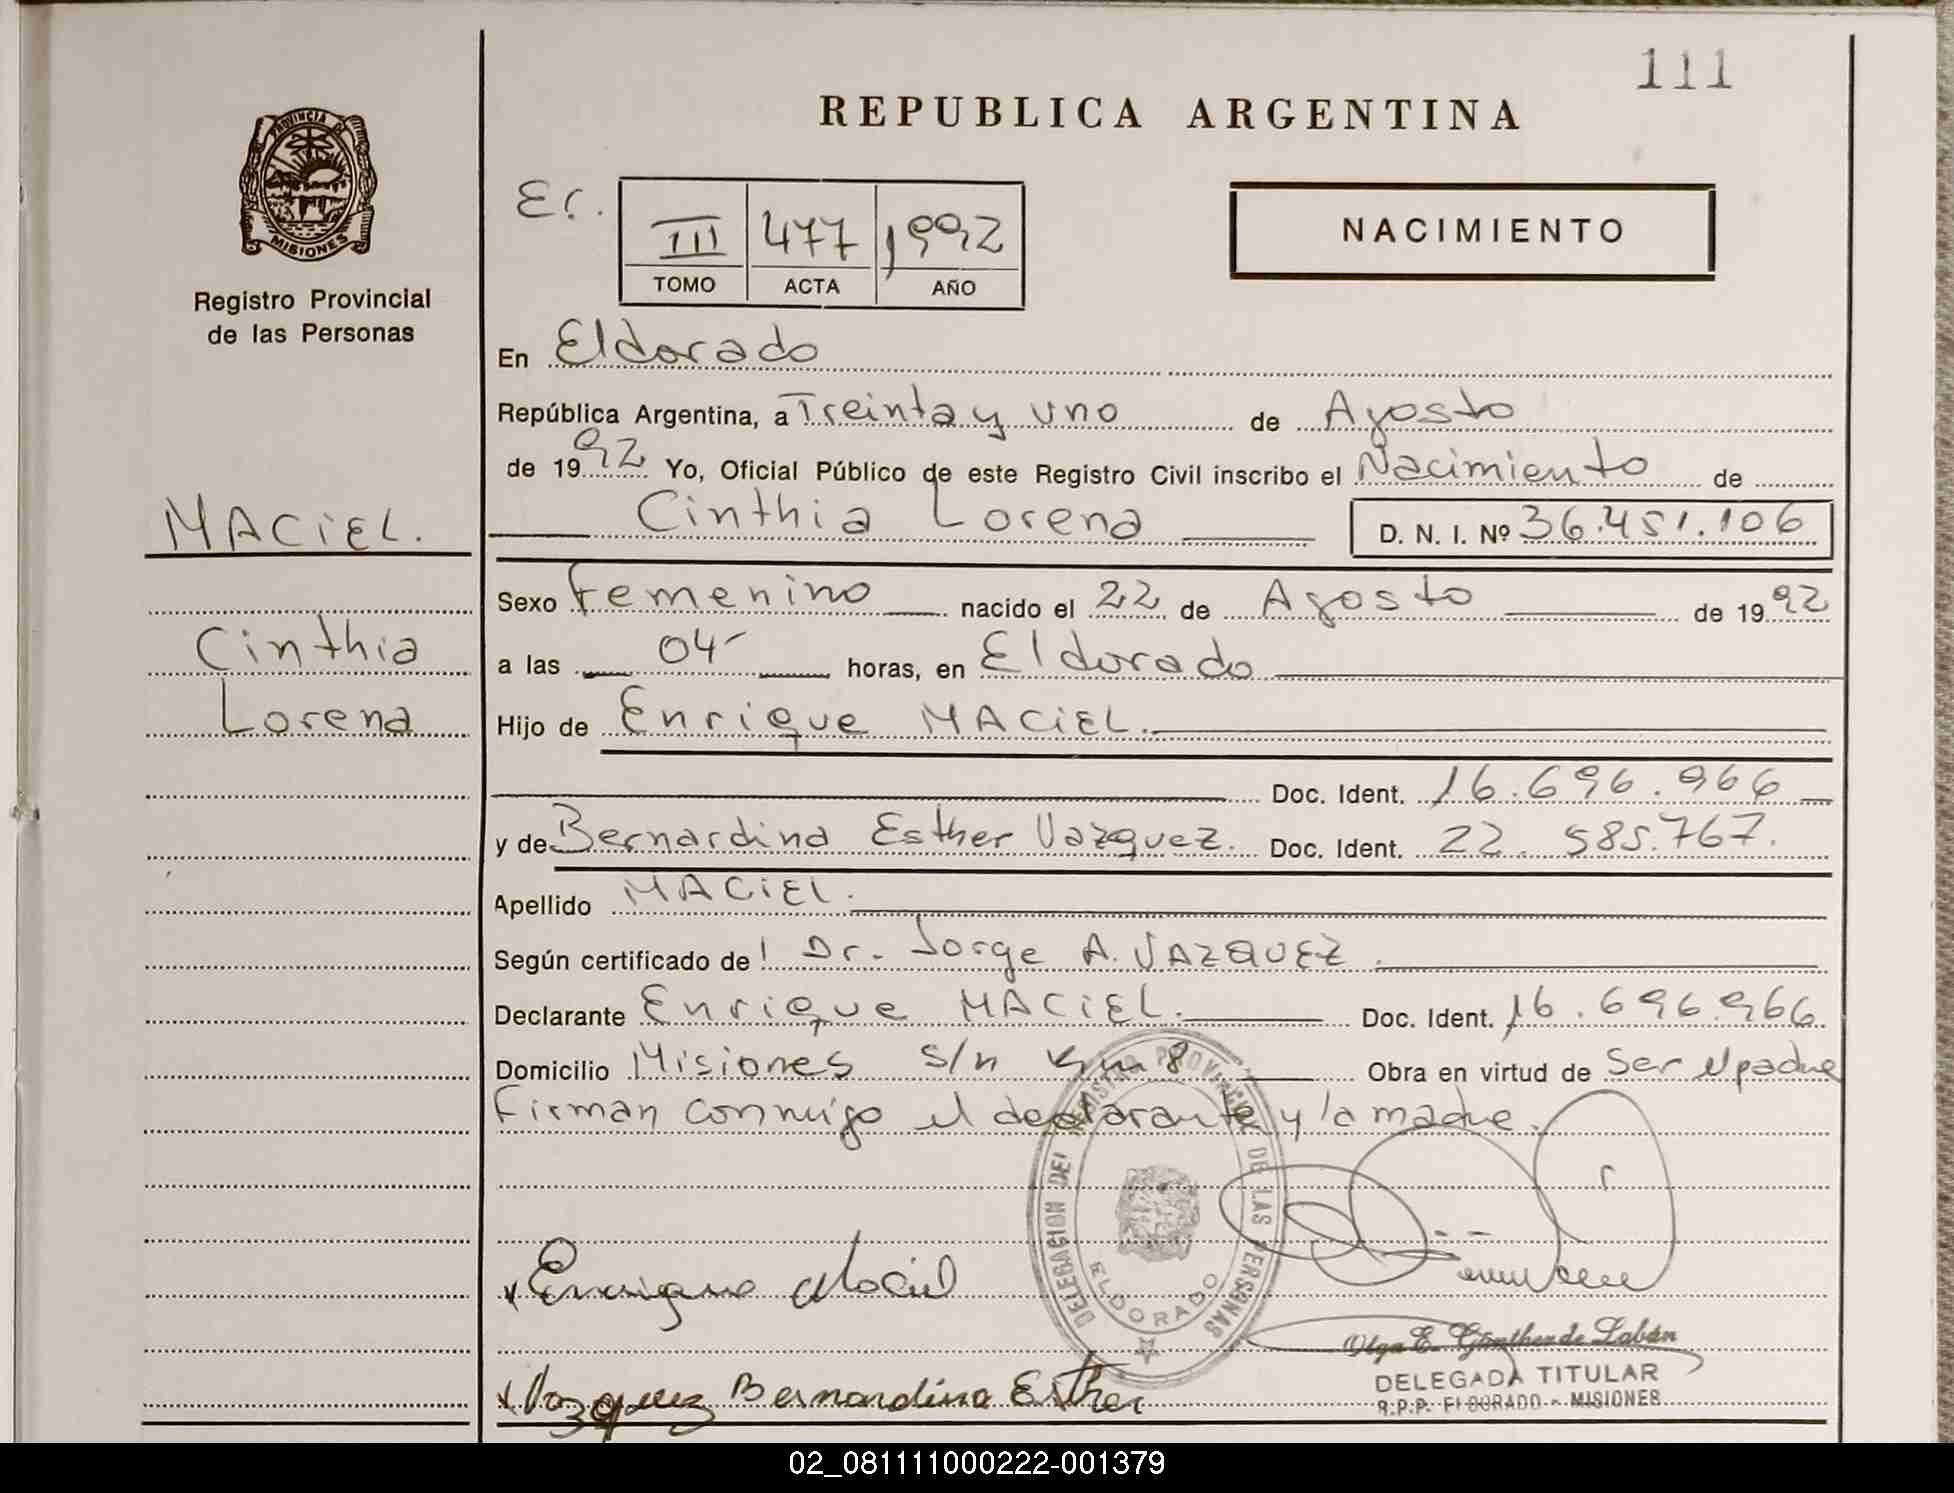 111
REPUBLICA ARGENTINA
PROVINCIA DE
MISIONES
Registro Provincial
de las Personas
Er.
III 477 1992
TOMO ACTA AÑO
NACIMIENTO
En Eldorado
República Argentina, a Treinta y uno de Agosto
de 1992 Yo, Oficial Público de este Registro Civil inscribo el Nacimiento de
Cinthia Lorena D. N. I. Nº 36.451.106
MACiEL.
Cinthia
Lorena
Sexo Femenino nacido el 22 de Agosto de 1992
a las 04 horas, en Eldorado
Hijo de Enrique MACiEL.
Doc. Ident. 16.696.966
y de Bernardina Esther Vazquez. Doc. Ident. 22.585.767.
Apellido MACiEL.
Según certificado de Dr. Jorge A. VAZQUEZ.
Declarante Enrique MACiEL. Doc. Ident. 16.696.966
Domicilio Misiones s/n Km 8 Obra en virtud de Ser el padre
Firman conmigo el declarante y la madre.
DELEGACION DEL REGISTRO PROVINCIAL DE LAS PERSONAS
ELDORADO
Enrique Maciel
Olga E. Günther de Labán
DELEGADA TITULAR
R.P.P. ELDORADO - MISIONES
Vazquez Bernardina Esther
02_081111000222-001379